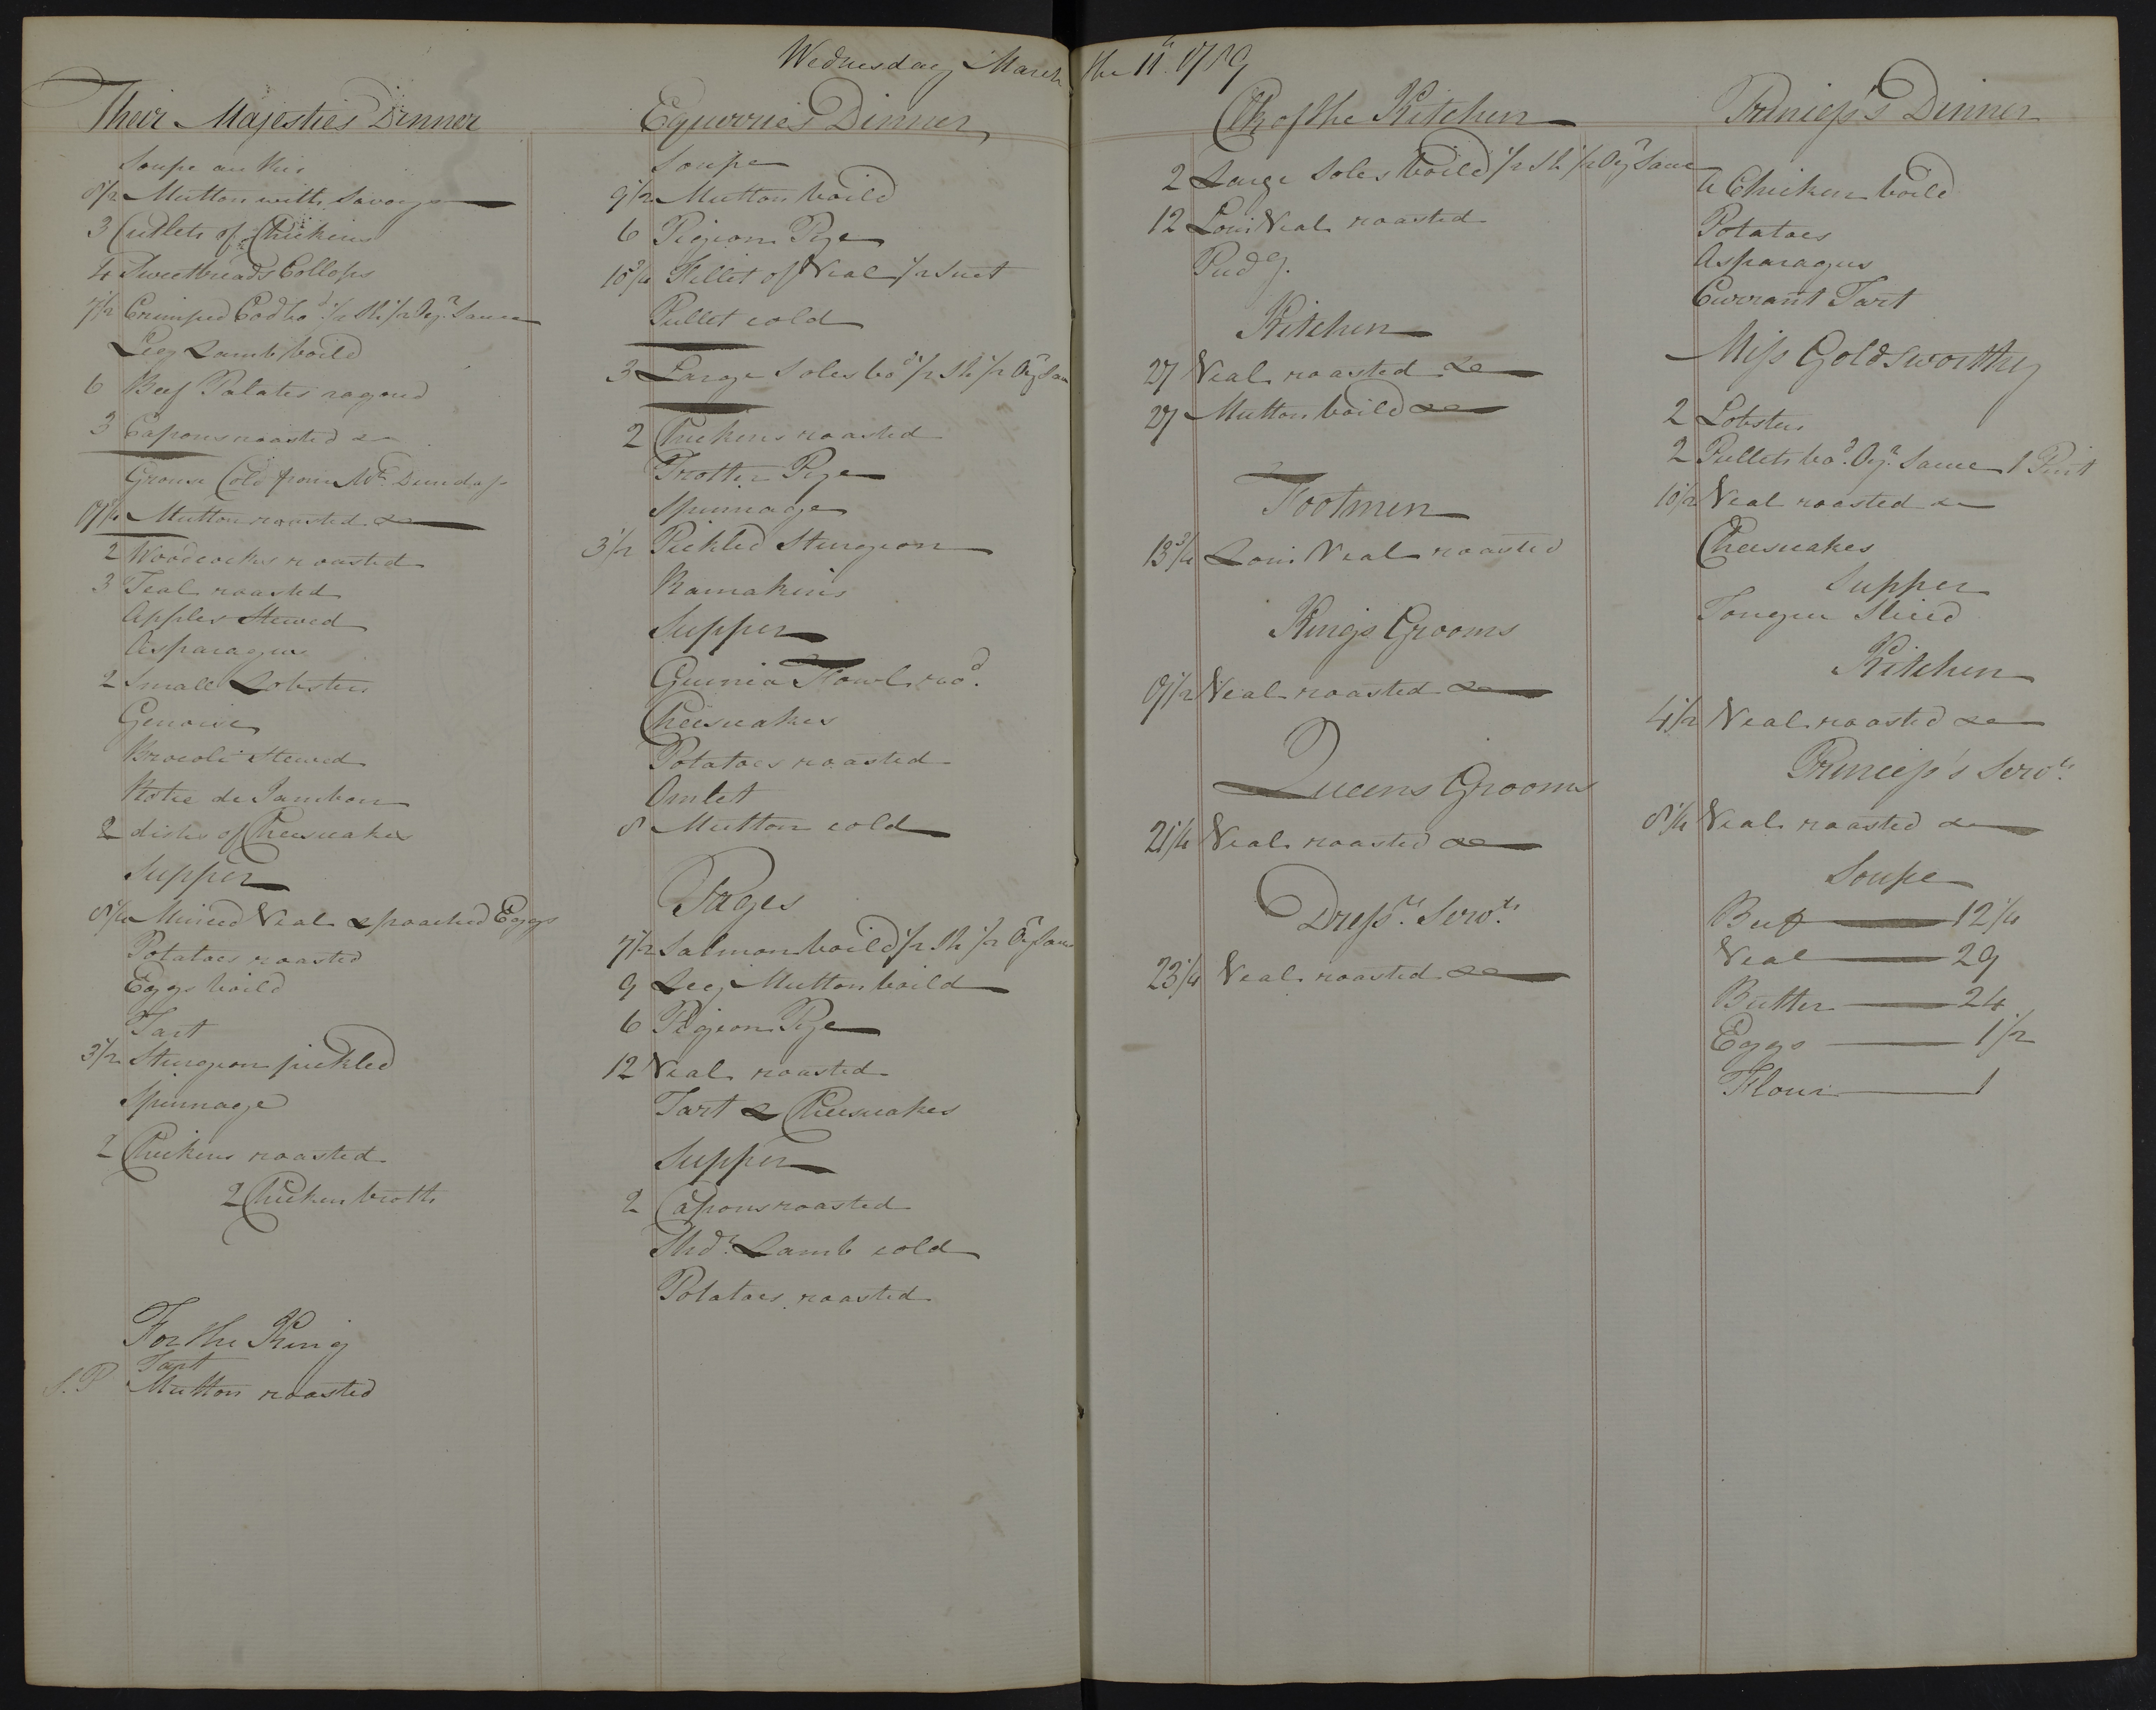 Wednesday March the 11th 1789
Their Majesties Dinner
Soupe au Ris
8 1/2 Mutton with Savoys
3 Cutlets of Chickens
4 Sweetbreads Collops
7 1/2 Crimped Cod bod. 1/2 Sh 1/2 Oyr. Sauce
Leg Lamb boild
6 Beef Palates ragoud
3 Capons roasted &
Grouse Cold from Mr. Dundass
Mutton roasted &
2 Woodcockes roasted
3 Teal roasted
Apples Stewed
Asparagus
2 Small Lobsters
Genoise
Brocoli Stewed
Rotie de Jambon
2 dishes of Cheescakes
Supper
8 1/4 Minced Veal & poached Eggs
Potatoes roasted
Eggs boild
Tart
3 1/2 Sturgeon pickled
Spinnage
2 Chickens roasted
2 Chicken broth
For the King
Tart
S. P Mutton roasted
Equerries Dinner
Soupe
9 1/2 Mutton boild
6 Pigeon Pye
10 3/4 Fillet of Veal 1/2 Suet
Pullet cold
3 Large Soles bod 1/2 Sh 1/2 Oyr Sau
2 Chickens roasted
Trotter Pye
Spinnage
3 1/2 Pickled Sturgeon
Ramakins
Supper
Guinia Fowl rod.
Cheescakes
Potatoes roasted
Omlett
8 Mutton cold
Pages
7 1/2 Salmon boild 1/2 Sh 1/2 Oyr Sauc
9 Leg Mutton boild
6 Pigeon Pye
12 Veal roasted
Tart & Cheescakes
Supper
2 Capons roasted
Shdr. Lamb cold
Potatoes roasted
Clk of the Kitchen
2 Large Soles boild 1/2 Sh 1/2 Oyr Sauce
12 Loin Veal roasted
Pudg.
Kitchen
27 Veal roasted &
27 Mutton boild &
Footmen
13 3/4 Loin Veal roasted
Kings Grooms
9 1/2 Veal roasted &
Queens Grooms
21 1/4 Veal roasted &
Dressrs. Servts.
23 1/4 Veal roasted &
Princess's Dinner
A Chicken boild
Potatoes
Asparagus
Currant Tart
Miss Goldsworthy
2 Lobsters
2 Pullets bod. Oyr. Sauce 1 Pint
10 1/2 Veal roasted &
Cheescakes
Supper
Tongue Sliced
Kitchen
4 1/2 Veal roasted &
Princess's Servts.
8 1/4 Veal roasted &
Soupe
Beef — 12 1/4
Veal — 29
Butter — 24
Eggs — 1 1/2
Flour — 1